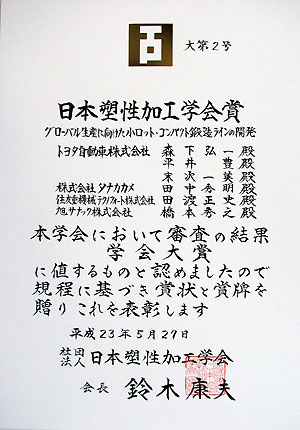 大第2号
日本塑性加工学会賞
グローバル生産に向けた小ロット・コンパクト鍛造ラインの開発
トヨタ自動車株式会社 森下弘一殿
平井 豊殿
末次一英殿
株式会社タナカカメ 田中秀明殿
住友重機械テクノフォート株式会社 田渡正史殿
旭サナック株式会社 橋本秀之殿
本学会において審査の結果
学会大賞
に値するものと認めましたので
規程に基づき賞状と賞牌を
贈りこれを表彰します
平成23年5月27日
社団法人 日本塑性加工学会
会長 鈴木康夫